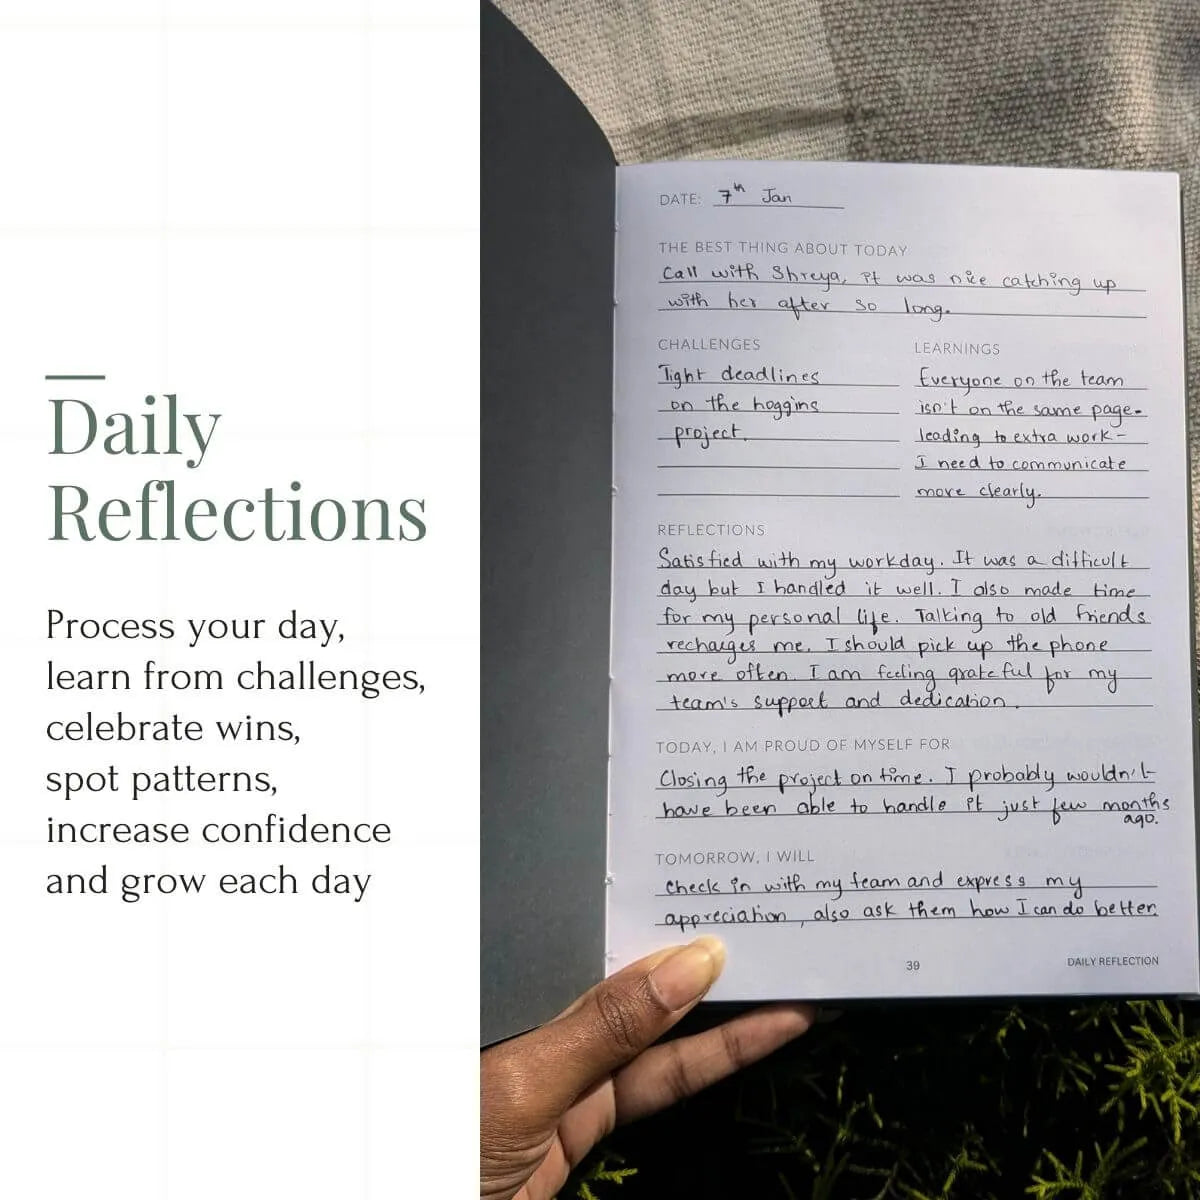 Daily
Reflections
Process your day,
learn from challenges,
celebrate wins,
spot patterns,
increase confidence
and grow each day
DATE: 7th Jan
THE BEST THING ABOUT TODAY
Call with Shreya, it was nice catching up
with her after so long.
CHALLENGES
Tight deadlines
on the hoggins
project.
LEARNINGS
Everyone on the team
isn't on the same page-
leading to extra work-
I need to communicate
more clearly.
REFLECTIONS
Satisfied with my workday. It was a difficult
day but I handled it well. I also made time
for my personal life. Talking to old friends
recharges me. I should pick up the phone
more often. I am feeling grateful for my
team's support and dedication.
TODAY, I AM PROUD OF MYSELF FOR
Closing the project on time. I probably wouldn't
have been able to handle it just few months
ago.
TOMORROW, I WILL
Check in with my team and express my
appreciation, also ask them how I can do better.
39
DAILY REFLECTION